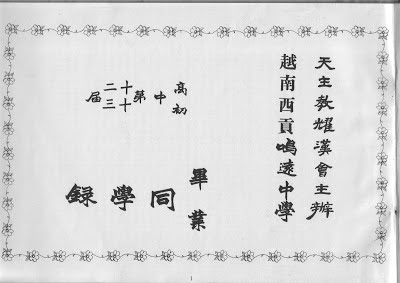 天主教耀漢會主辦
越南西貢鳴遠中學
高初中第十二十三屆
畢業同學録
1